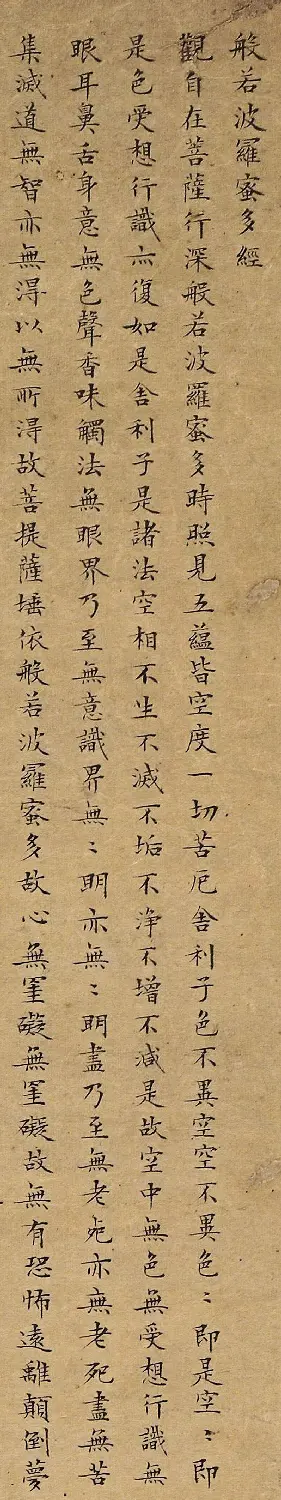 般若波羅蜜多經
觀自在菩薩行深般若波羅蜜多時照見五蘊皆空度一切苦厄舍利子色不異空空不異色〻即是空〻即
是色受想行識亦復如是舍利子是諸法空相不生不滅不垢不淨不增不減是故空中無色無受想行識無
眼耳鼻舌身意無色聲香味觸法無眼界乃至無意識界無〻明亦無〻明盡乃至無老死亦無老死盡無苦
集滅道無智亦無得以無所得故菩提薩埵依般若波羅蜜多故心無罣礙無罣礙故無有恐怖遠離顛倒夢